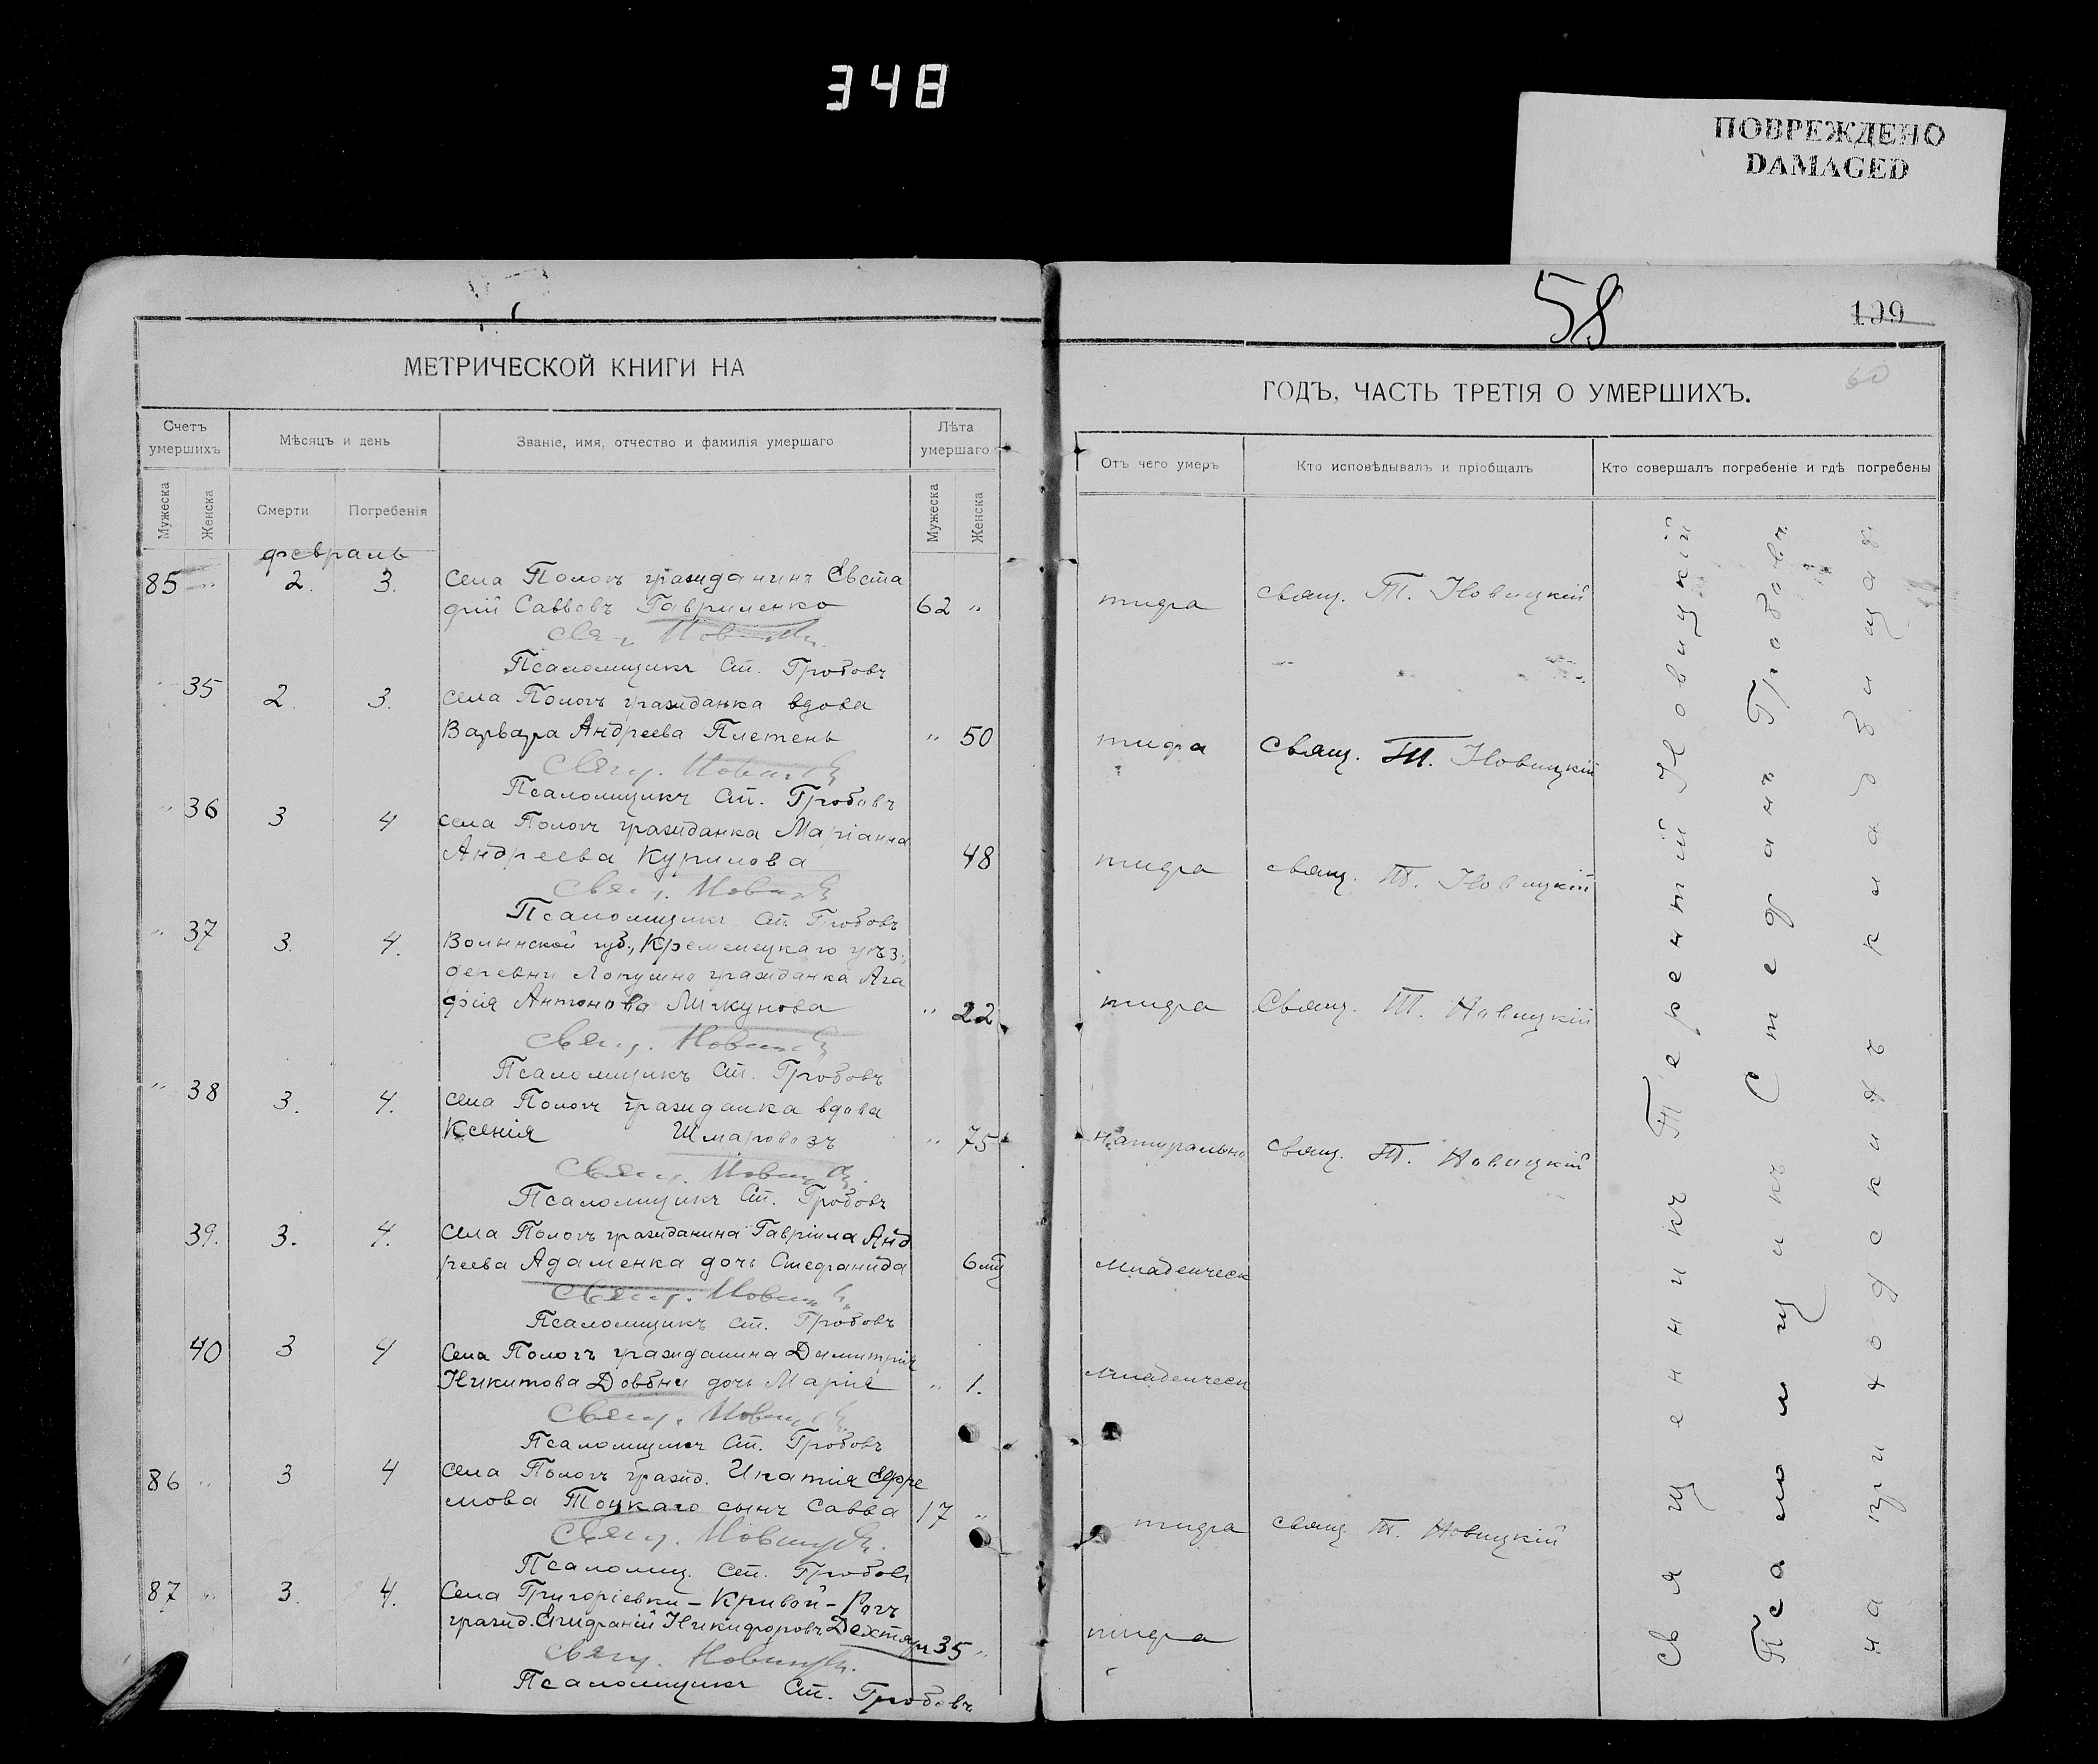 348
ПОВРЕЖДЕНО
DAMAGED
МЕТРИЧЕСКОЙ КНИГИ НА
Счетъ умершихъ
Мѣсяцъ и день
Званіе, имя, отчество и фамилія умершаго
Лѣта умершаго
Мужеска
Женска
Смерти
Погребенія
Мужеска
Женска
февраль
85 " 2. 3. села Пологъ гражданинъ Евста
фій Саввовъ Гавриленко 62 "
Свящ. Новицкій
Псаломщикъ Ст. Гробовъ
" 35 2 3. села Пологъ гражданка вдова
Варвара Андреева Плетень " 50
Свящ. Новицкій
Псаломщикъ Ст. Гробовъ
" 36 3 4 села Пологъ гражданка Маріанна
Андреева Курилова 48
Свящ. Новицкій
Псаломщикъ Ст. Гробовъ
" 37 3. 4. Волынской губ., Кременецкаго уѣз.,
деревни Лопушно гражданка Ага
фія Антонова " 22
Свящ. Новицкій
Псаломщикъ Ст. Гробовъ
" 38 3. 4. села Пологъ гражданка вдова
Ксенія Шмаровозъ " 75
Свящ. Новицкій
Псаломщикъ Ст. Гробовъ
39. 3. 4. села Пологъ гражданина Гавріила Анд
реева Адаменка дочь Стефанида 6 мц
Свящ. Новицкій
Псаломщикъ Ст. Гробовъ
40 3 4 села Пологъ гражданина Димитрія
Никитова Довбни дочь Марія " 1.
Свящ. Новицкій
Псаломщикъ Ст. Гробовъ
86 " 3 4 села Пологъ гражд. Ипатія Ефре
мова Тоцкаго сынъ Савва 17 "
Свящ. Новицкій
Псаломщ. Ст. Гробовъ
87 " 3. 4. Села Григоріевки - Кривой - Рогъ
гражд. Епифаній Никифоровъ Дехтярь 35 "
Свящ. Новицкій
Псаломщикъ Ст. Гробовъ
58
109
60
ГОДЪ, ЧАСТЬ ТРЕТІЯ О УМЕРШИХЪ.
Отъ чего умеръ
Кто исповѣдывалъ и пріобщалъ
Кто совершалъ погребеніе и гдѣ погребены
тифа свящ. Т. Новицкій
тифа Свящ. Т. Новицкій
тифа свящ. Т. Новицкій
тифа Свящ. Т. Новицкій
натурально свящ. Т. Новицкій
младенческ
младенческ
тифа свящ. Т. Новицкій
тифа
Священникъ Терентій Новицкій
Псаломщикъ Стефанъ Гробовъ
на приходскихъ кладбищах